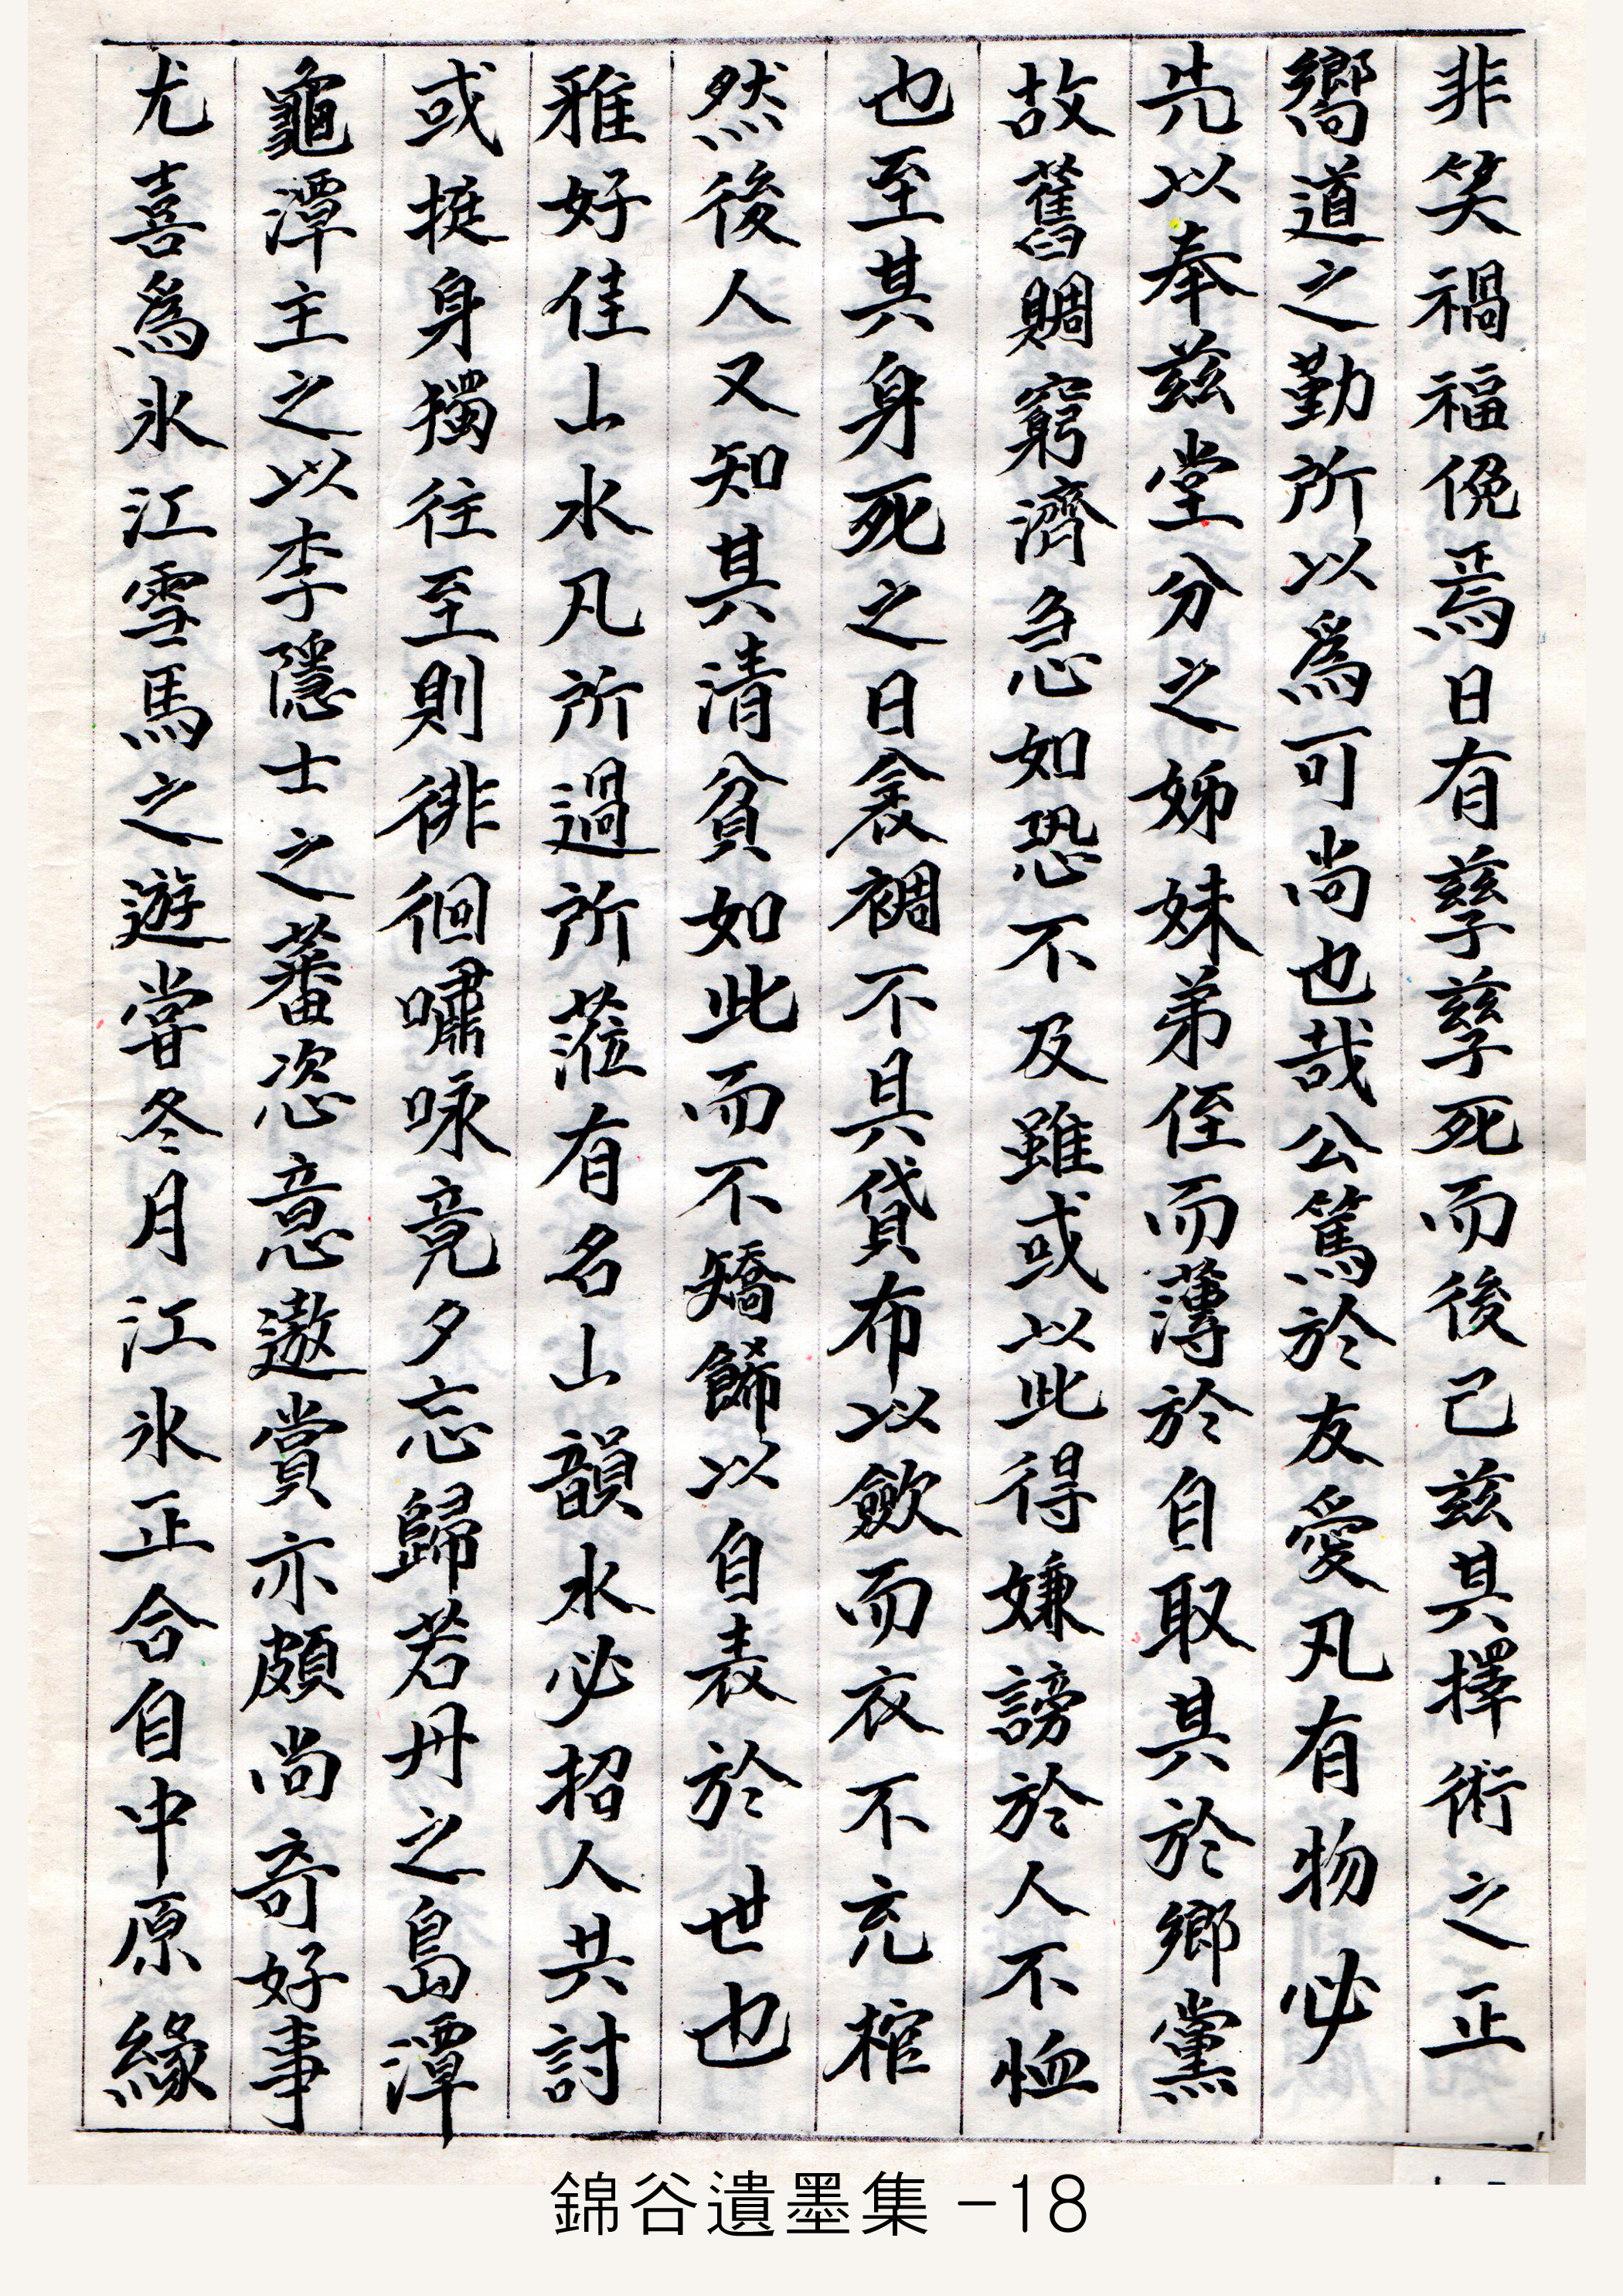 非笑禍福俛焉日有孶孶死而後己玆其擇術之正
嚮道之勤所以爲可尚也哉公篤於友愛凡有物必
先以奉玆堂分之姊妹弟侄而薄於自取其於鄉黨
故舊賙窮濟急如恐不及雖或以此得嫌謗於人不恤
也至其身死之日衾裯不具貸布以斂而衣不充棺
然後人又知其清貧如此而不矯餙以自表於世也
雅好佳山水凡所過所蒞有名山韻水必招人共討
或挺身獨往至則徘徊嘯咏竟夕忘歸若丹之島潭
龜潭主之以李隱士之蕃恣意遨賞亦頗尚奇好事
尤喜爲氷江雪馬之遊嘗冬月江氷正合自中原緣
錦谷遺墨集 -18